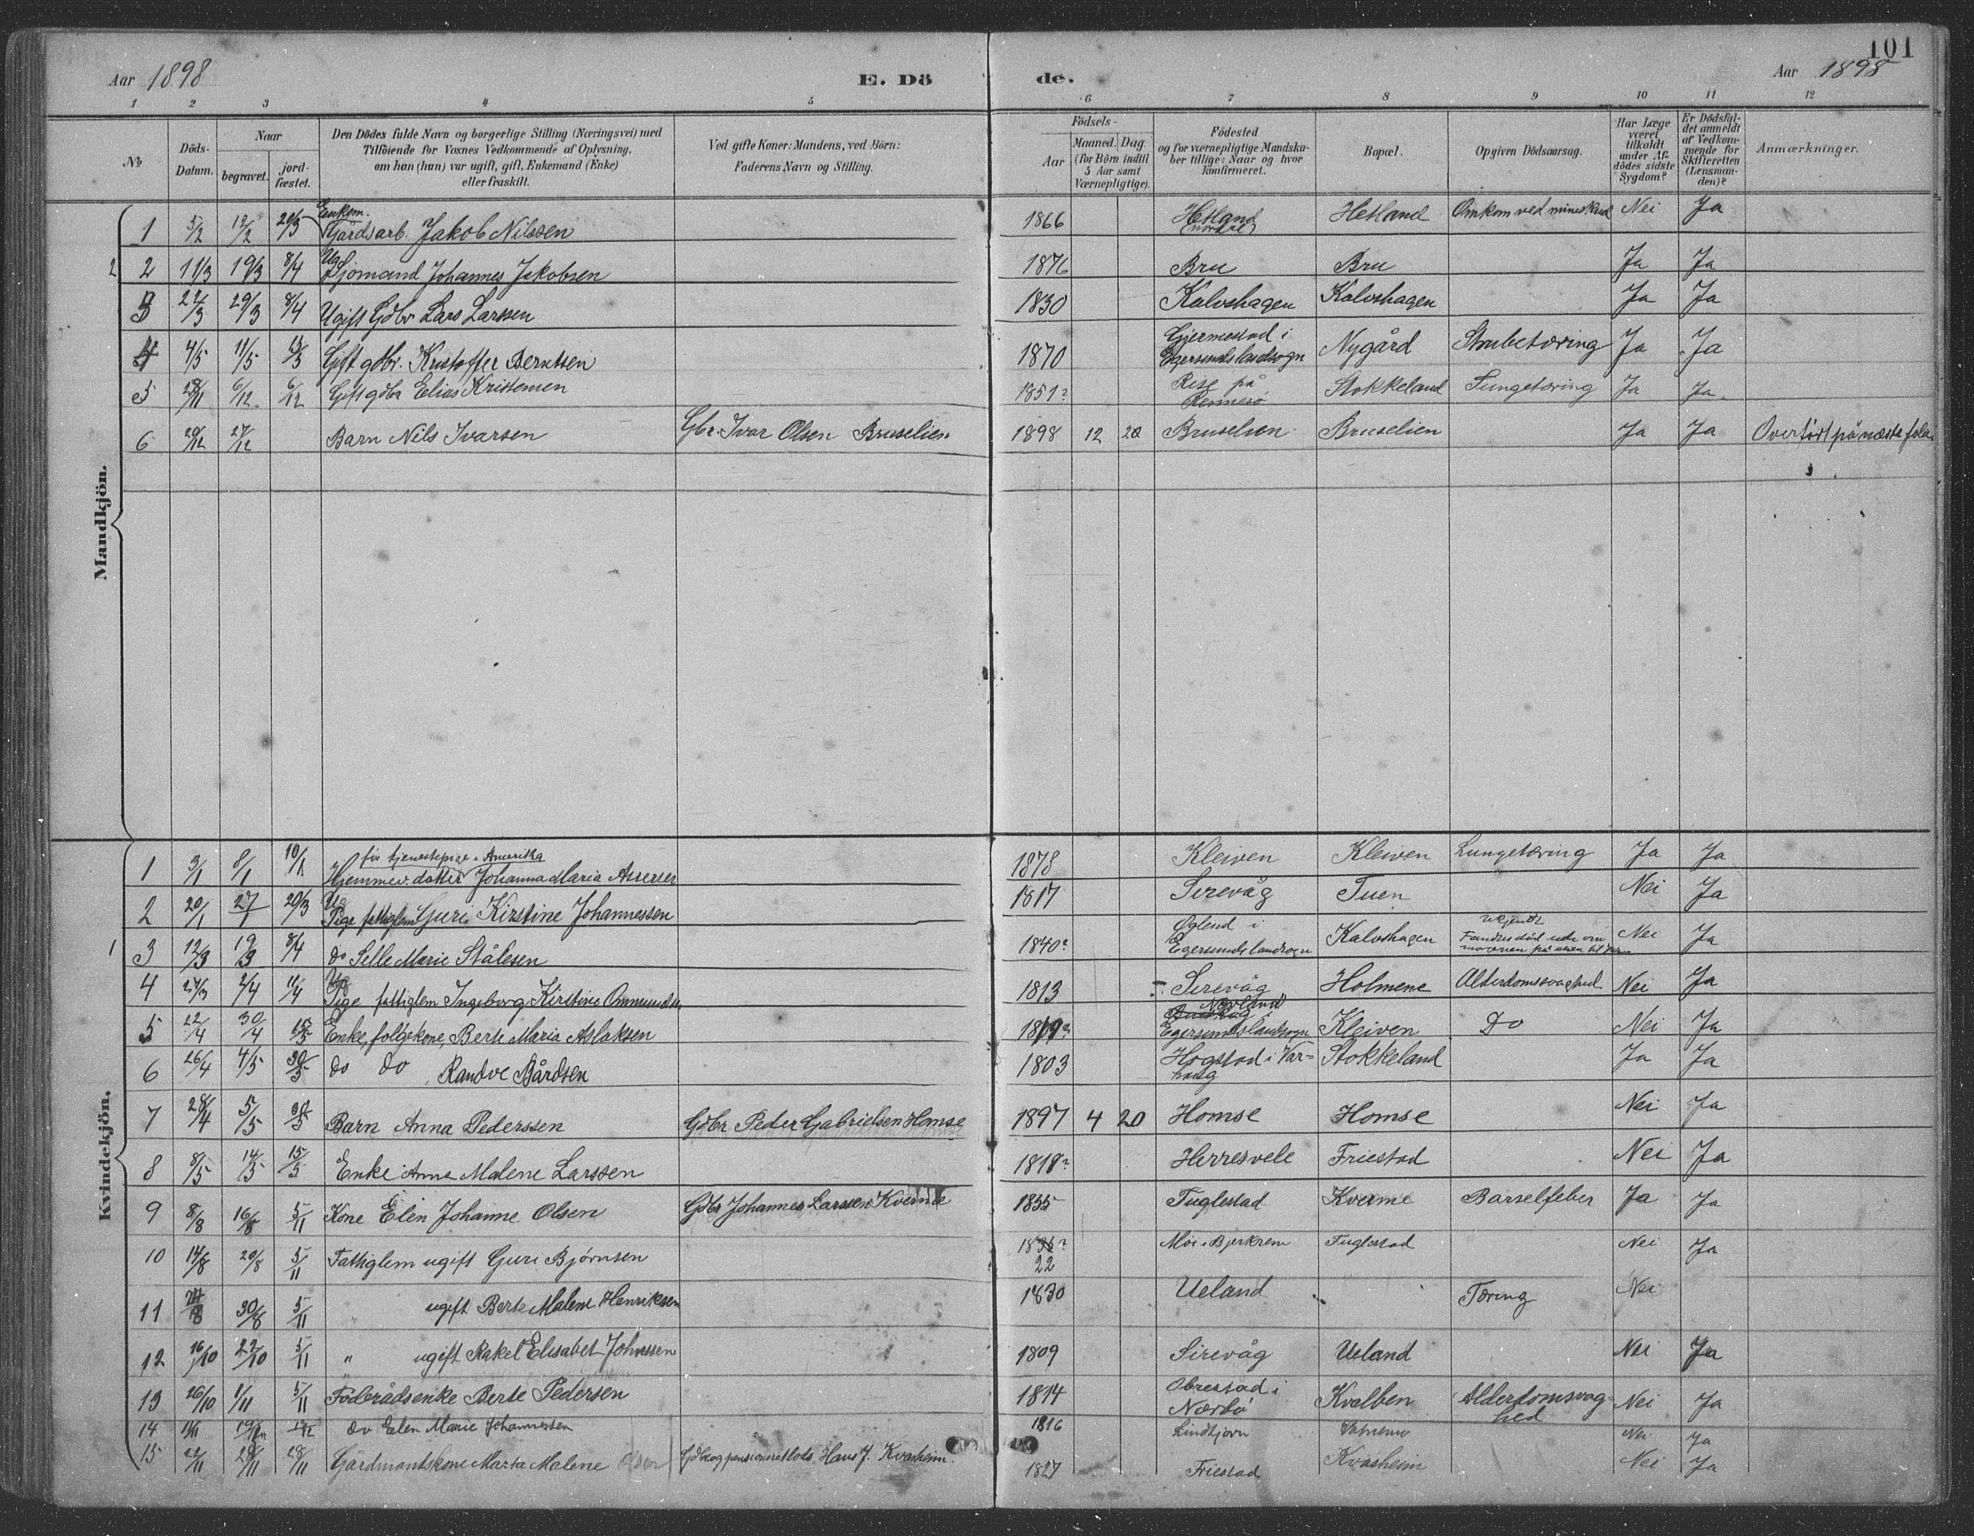 101
Aar 1898 E. Dö
de. Aar 1898
1 2 3 4 5
6 7 8 9 10 11 12
No
Döds-Datum.
Naar
begravet.
jord-fæstet.
Den Dödes fulde Navn og borgerlige Stilling (Næringsvei) med
Tilföiende for Voxnes Vedkommende af Oplysning,
om han (hun) var ugift, gift, Enkemand (Enke)
eller fraskilt.
Ved gifte Koner: Mandens, ved Börn:
Faderens Navn og Stilling.
Födsels-
Aar
Maaned. Dag.
(for Börn indtil
5 Aar samt
Værnepligtige).
Födested
og for værnepligtige Mandska-
ber tillige: Naar og hvor
konfirmeret.
Bopæl.
Opgiven Dödsaarsag.
Har Læge
været
tilkaldt
under Af-
dödes sidste
Sygdom?
Er Dödsfal-
det anmeldt
af Vedkom-
mende for
Skifteretten
(Lensman-
den)?
Anmærkninger.
Mandkjön.
1 5/2 12/2 20/3 Enkem. Gårdsarb. Jakob Nilssen 1866 Hetland Hetland Omkom ved mineskud Nei Ja
2 2 11/3 19/3 8/4 Ug Sjømand Johannes Jakobsen 1876 Bru Bru Ja Ja
3 22/3 29/3 8/4 Ugift Gdbr Lars Larssen 1830 Kalvshagen Kalvshagen Ja Ja
4 4/5 11/5 Gift gdbr. Kristoffer Berntsen 1870 Gjermestad i Egersunds landsogn Nygård Strubetæring Ja Ja
5 28/11 6/12 6/12 Gift gdbr Elias Kristensen 1851? Rise på Rennesø Stokkeland Lungetæring Ja Ja.
6 29/12 27/12 Barn Nils Ivarsen Gbr. Ivar Olsen Bruselien 1898 12 20 Bruselien Bruselien Ja Ja Overført på næste
Kvindekjön.
1 3/1 8/1 10/1 før tjenestepige i Amerika Hjemmev. datter Johanna Maria Assersen 1878 Kleiven Kleiven Lungetæring Ja Ja
2 20/1 27/1 20/3 Ug Pige fattiglem Guri Kirstine Johannessen 1817 Sirevåg Tuen Nei Ja
1 3 12/3 19/3 8/4 do Selle Marie Stålesen 1840? Øglend i Egersunds landsogn Kalvshagen Ukjendt Nei Ja
4 27/3 2/4 11/4 Ug Pige fattiglem Ingeborg Kirstine Ommundsen 1813 Sirevåg Holmene Alderdomssvaghed Nei Ja
5 22/4 30/4 15/5 Enke, folgekone, Berte Maria Aslaksen 1819? Egersunds landsogn Kleiven Do Nei Ja
6 26/4 4/5 do do Randve Bårdsen 1803 Hogstad i Varhaug Stokkeland Ja Ja
7 28/4 5/5 Barn Anna Pederssen Gdbr Peder Gabrielsen Homse 1897 4 20 Homse Homse Nei Ja
8 8/5 14/5 15/5 Enke Anna Malene Larssen 1818? Herresvele Friestad Nei Ja
9 8/8 16/8 5/11 Kone Elen Johanne Olsen Gdbr Johannes Larssen Kverme 1855 Fuglestad Kverme Barselfeber Ja Ja
10 14/8 20/8 5/11 Fattiglem ugift Guri Bjørnsen 22 Moi i Bjerkrem Fuglestad Nei Ja
11 30/8 5/11 " ugift Berte Malene Henriksen 1830 Ueland " Tæring Nei
12 16/10 22/10 5/11 " ugift Rakel Elisabet Johnssen 1809 Sirevåg Ueland Nei Ja
13 26/10 1/11 5/11 Føderådsenke Berte Pedersen 1814 Obrestad i Nærbø Kvalben Alderdomsvaghed Nei Ja
14 do Elen Marie Johannessen 1816 Lindtjørn Nei Ja
15 22/11 28/11 28/11 Gårdmandskone Marta Malene Olsen Hans J. Kvasheim. 1827 Friestad Kvasheim Nei Ja